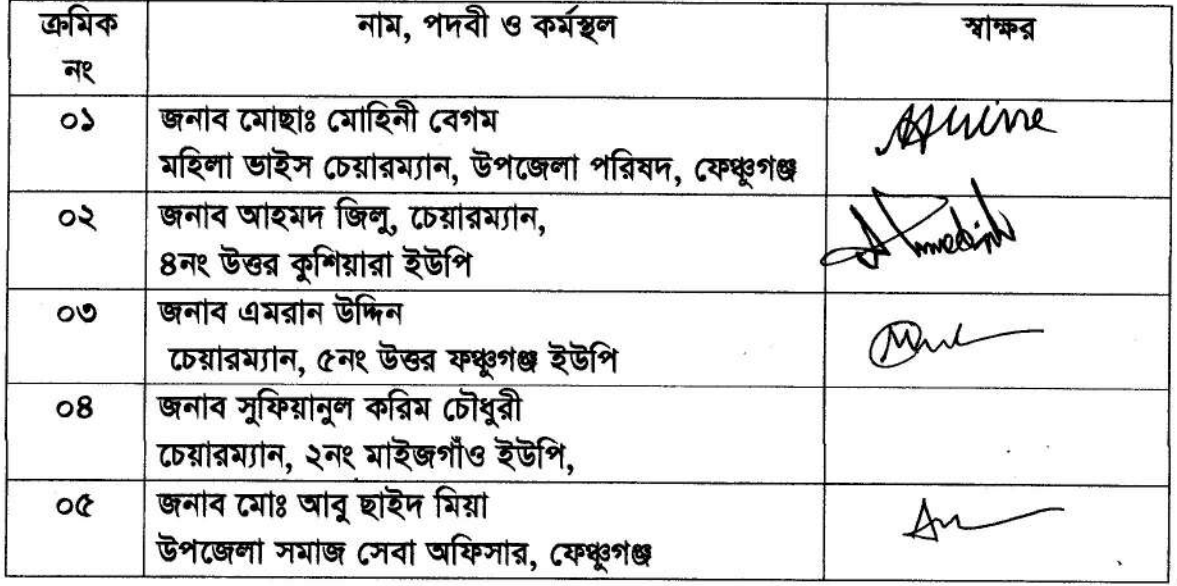 ক্রমিক নং নাম, পদবী ও কর্মস্থল স্বাক্ষর
০১ জনাব মোছাঃ মোহিনী বেগম
মহিলা ভাইস চেয়ারম্যান, উপজেলা পরিষদ, ফেঞ্চুগঞ্জ
০২ জনাব আহমদ জিলু, চেয়ারম্যান,
৪নং উত্তর কুশিয়ারা ইউপি
০৩ জনাব এমরান উদ্দিন
চেয়ারম্যান, ৫নং উত্তর ফঞ্চুগঞ্জ ইউপি
০৪ জনাব সুফিয়ানুল করিম চৌধুরী
চেয়ারম্যান, ২নং মাইজগাঁও ইউপি,
০৫ জনাব মোঃ আবু ছাইদ মিয়া
উপজেলা সমাজ সেবা অফিসার, ফেঞ্চুগঞ্জ